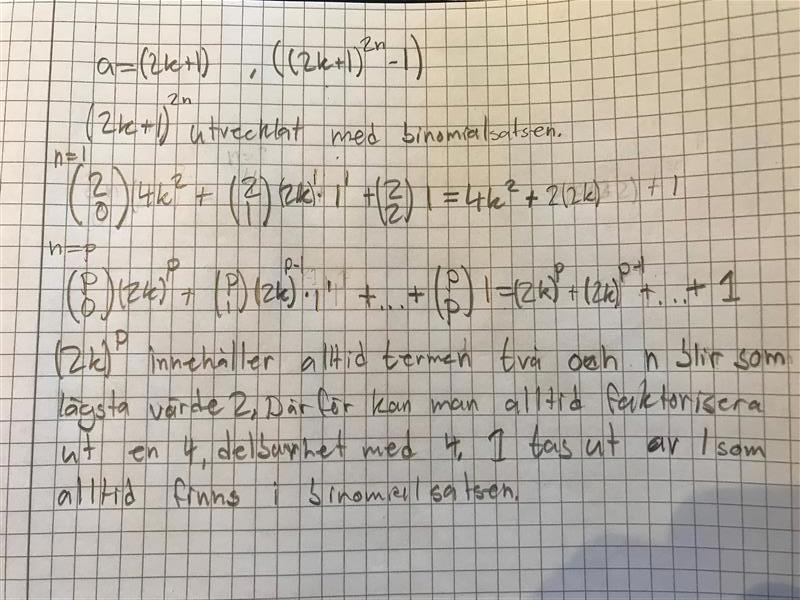 a=(2k+1) , ((2k+1)^2n -1)
(2k+1)^2n utvecklat med binomialsatsen.
n=1
(2 0)(4k^2 + (2 1)(2k)^1·1^1 +(2 2) 1 = 4k^2 + 2(2k) + 1
n=p
(p 0)(2k)^p + (p 1)(2k)^p-1·1^1 +...+ (p p) 1=(2k)^p+(2k)^p-1+...+ 1
(2k)^p innehåller alltid termen två och n blir som
lägsta värde 2, Därför kan man alltid faktorisera
ut en 4, delbarhet med 4, 1 tas ut av 1 som
alltid finns i